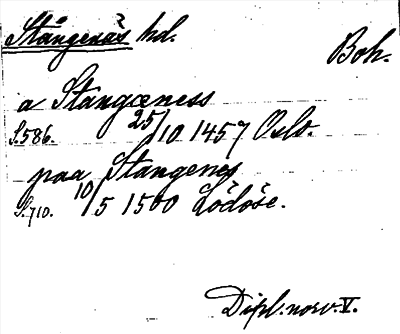 Stångenäs hd.
Boh.
a Stangæness
S.586. 25/10 1457 Oslo.
paa Stangenes
S.710. 10/5 1500 Lödöse.
Dipl. norv. V.